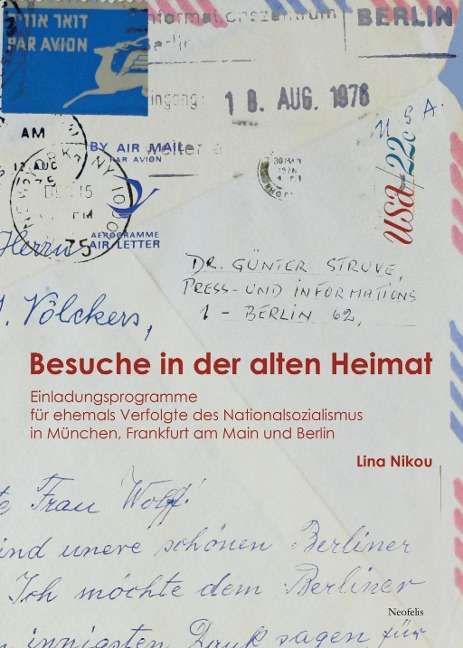 דואר אויר
PAR AVION
Informationszentrum
BERLIN
Berlin
18. AUG. 1976
U.S.A.
AM
BY AIR MAIL
PAR AVION
usa 22c
NEW YORK, NY 100
PM
75
AEROGRAMME
AIR LETTER
Herrn
Völckers,
DR. GÜNTER STRUVE,
PRESS- UND INFORMATIONS
1 - BERLIN 62,
Besuche in der alten Heimat
Einladungsprogramme
für ehemals Verfolgte des Nationalsozialismus
in München, Frankfurt am Main und Berlin
Lina Nikou
Frau Wolff!
und unere schönen Berliner
Ich möchte dem Berliner
Neofelis
innigsten Dank sagen für